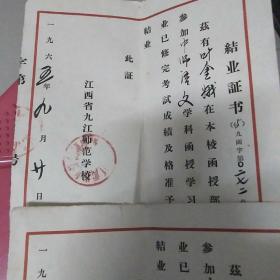 結业证书
(65)九函字第0二七二
兹有叶金娥在本校函授部
参加中师语文学科函授学习
业已修完考试成绩及格准予
結业
此証
江西省九江师范学校
一九六五年九月廿日
字第
号
兹
参加
业已
結业
一九